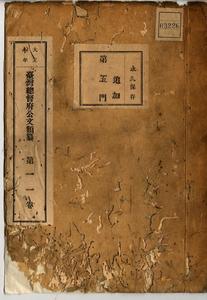 大正
七年
臺灣總督府公文類纂 第一一卷
永久保存
追加
第五門
03226